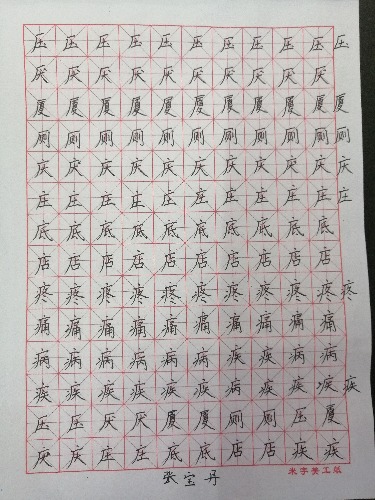 压压压压压压压压压压压
厌厌厌厌厌厌厌厌厌厌
厦厦厦厦厦厦厦厦厦厦厦
厕厕厕厕厕厕厕厕厕厕厕
庆庆庆庆庆庆庆庆庆庆庆
庄庄庄庄庄庄庄庄庄庄庄
底底底底底底底底底底
店店店店店店店店店店
疼疼疼疼疼疼疼疼疼疼疼
痛痛痛痛痛痛痛痛痛痛
病病病病病病疾疾病病
疾疾疾疾疾疾病疾疾疾疾
压压厌厌厦厦厕厕压厦
庆庄庄庄底底店店疾疾
张宝丹